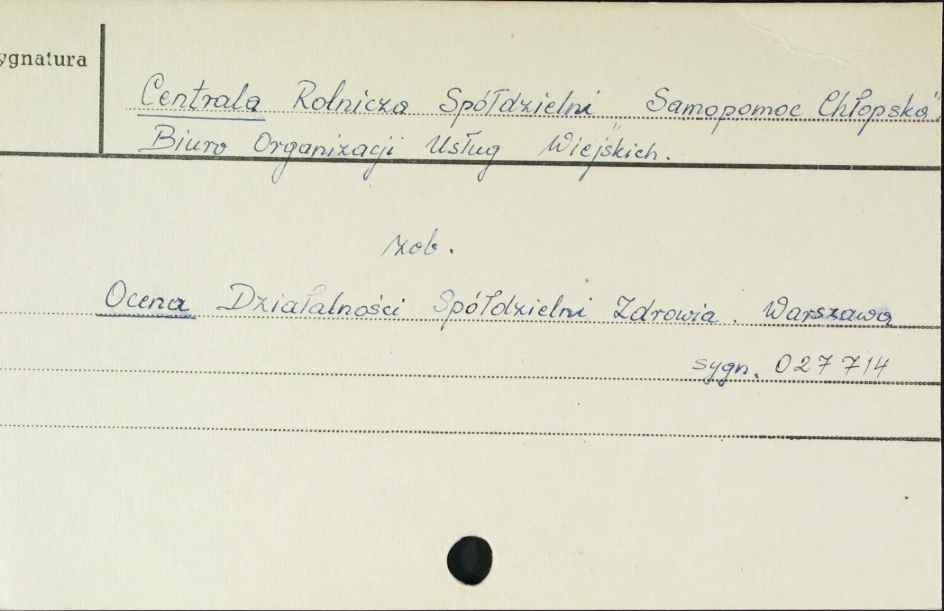 ygnatura
Centrala Rolnicza Spółdzielni „Samopomoc Chłopska"
Biuro Organizacji Usług Wiejskich.
zob.
Ocena Działalności Spółdzielni Zdrowia. Warszawa
sygn. 027714